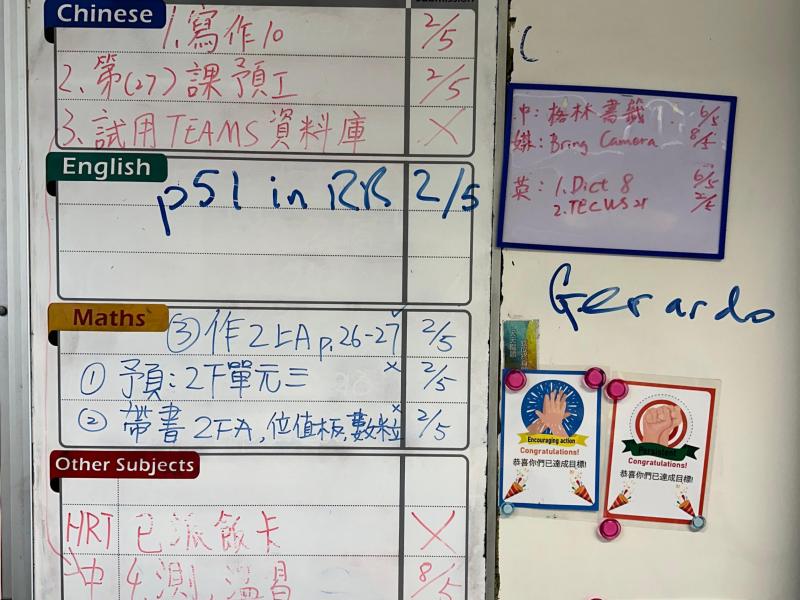 Submission
Chinese
1. 寫作10 2/5
2. 第(27)課預工 2/5
3. 試用TEAMS資料庫 X
English
p51 in RR 2/5
Maths
③ 作2上A p.26-27 ✓ 2/5
① 預:2下單元三 x 2/5
② 帶書2下A,位值板,數粒 x 2/5
Other Subjects
HRT 已派飯卡 X
中 4.測,溫習 8/5
中: 格林書籤 6/5
媒: Bring Camera 8/5
英: 1. Dict 8 6/5
2. TEC WS 2/5
Gerardo
Encouraging action
Congratulations!
恭喜你們已達成目標!
Persistent
Congratulations!
恭喜你們已達成目標!